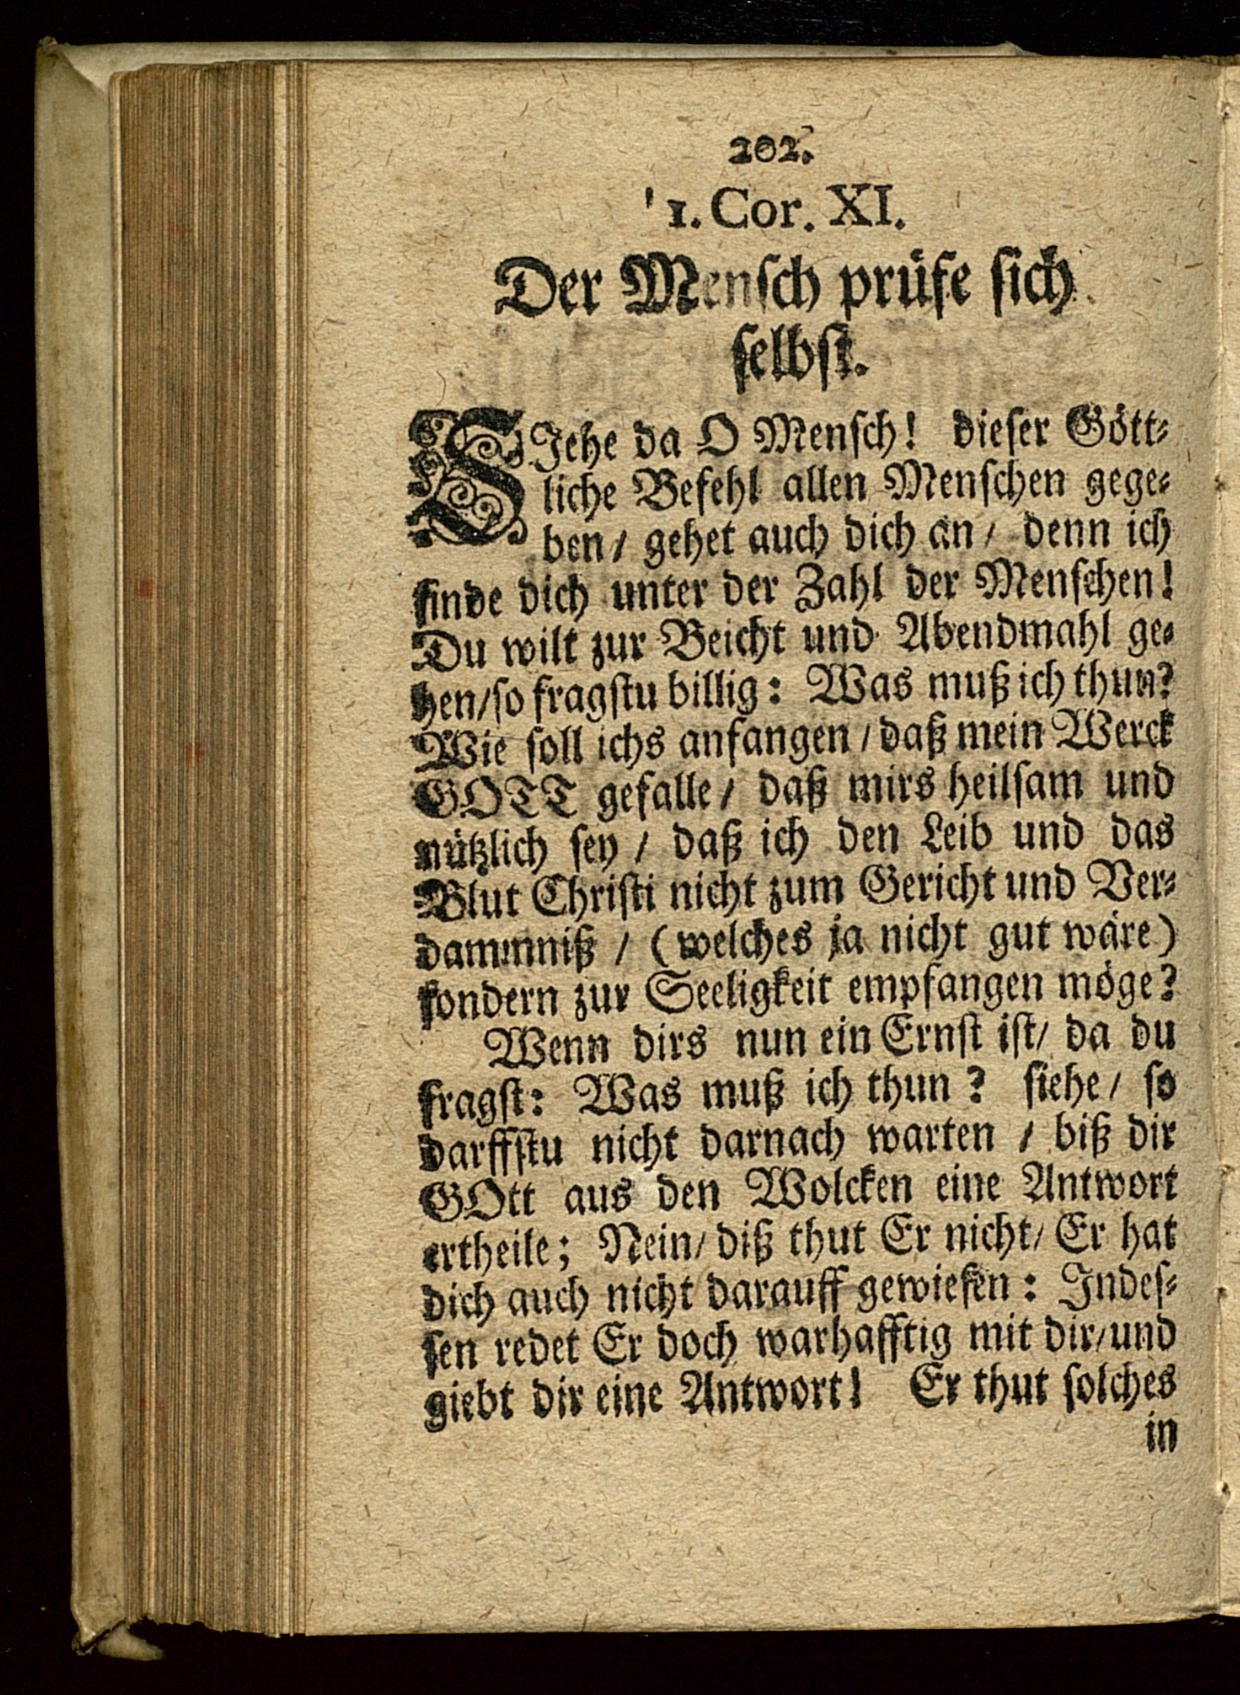 202.
1. Cor. XI.
Der Mensch prüfe sich
selbst.
SIehe da O Mensch! dieser Gött-
liche Befehl allen Menschen gege-
ben / gehet auch dich an / denn ich
finde dich unter der Zahl der Menschen!
Du wilt zur Beicht und Abendmahl ge-
hen/so fragstu billig: Was muß ich thun?
Wie soll ichs anfangen / daß mein Werck
GOTT gefalle / daß mirs heilsam und
nützlich sey / daß ich den Leib und das
Blut Christi nicht zum Gericht und Ver-
dammniß / (welches ja nicht gut wäre)
sondern zur Seeligkeit empfangen möge?
Wenn dirs nun ein Ernst ist/ da du
fragst: Was muß ich thun? siehe / so
darffstu nicht darnach warten / biß dir
GOtt aus den Wolcken eine Antwort
ertheile; Nein/ diß thut Er nicht/ Er hat
dich auch nicht darauff gewiesen: Indes-
sen redet Er doch warhafftig mit dir/und
giebt dir eine Antwort! Er thut solches
in